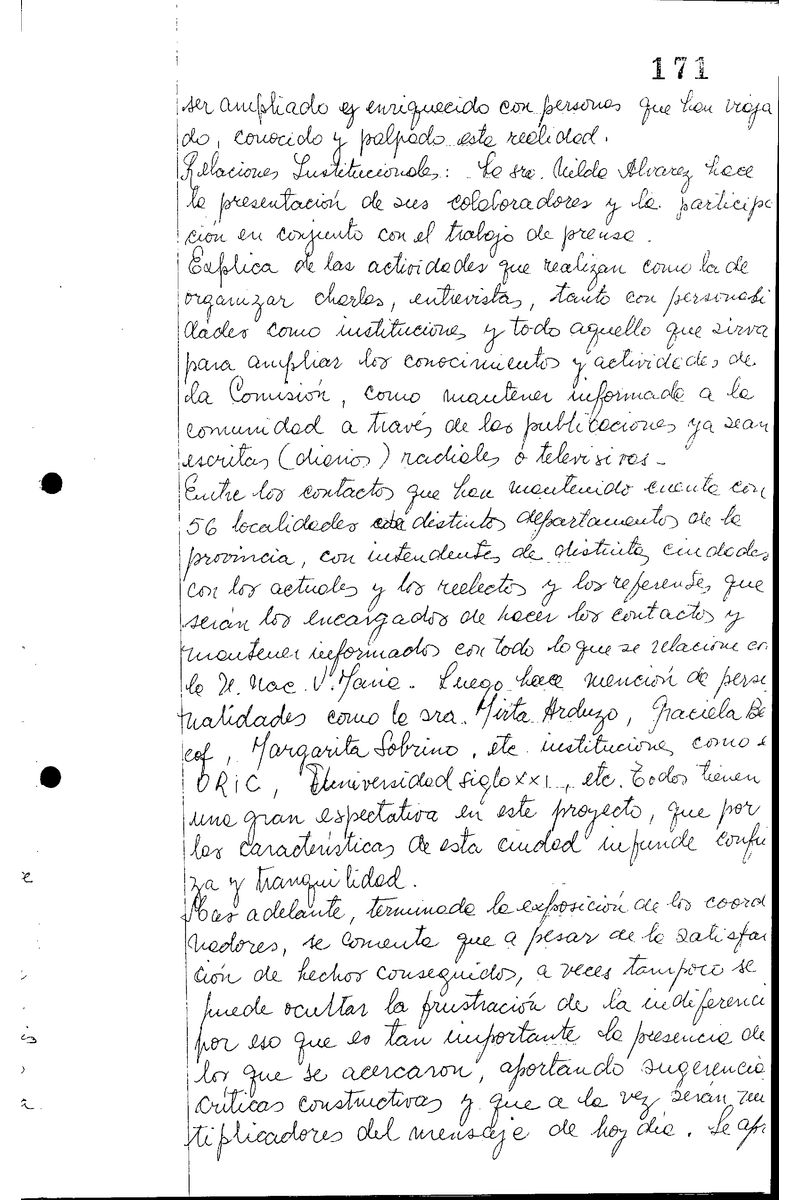 171
ser ampliado y enriquecido con personas que han viaja
do, conocido y palpado esta realidad.
Relaciones Institucionales: La sra. Nilda Alvarez hace
la presentación de sus colaboradores y la participa
ción en conjunto con el trabajo de prensa.
Explica de las actividades que realizan como la de
organizar charlas, entrevistas, tanto con personali
dades como instituciones y todo aquello que sirva
para ampliar los conocimientos y actividades de
la Comisión, como mantener informada a la
comunidad a través de las publicaciones ya sean
escritas (diarios) radiales o televisivas-
Entre los contactos que han mantenido cuenta con
56 localidades de distintos departamentos de la
provincia, con intendentes de distintas ciudades
con los actuales y los reelectos y los referentes que
serán los encargados de hacer los contactos y
mantener informados con todo lo que se relacione co
la U. Nac. V. Maria. Luego hace mención de perso
nalidades como la sra. Mirta Arduzo, Graciela Be
cof, Margarita Sobrino, etc. instituciones como e
ORIC, Universidad siglo XXI, etc. Todos tienen
una gran espectativa en este proyecto, que por
las características de esta ciudad infunde confia
za y tranquilidad.
Mas adelante, terminada la exposición de los coord
nadores, se comenta que a pesar de la satisfac
ción de hechos conseguidos, a veces tampoco se
puede ocultar la frustración de la indiferenci
por eso que es tan importante la presencia de
los que se acercaron, aportando sugerencia
críticas constructivas y que a la vez serán mu
tiplicadores del mensaje de hoy día. Se
e
is
a